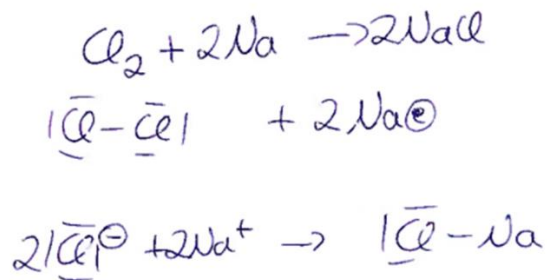 Cl₂ + 2Na → 2NaCl
|C̲̅l̲̅ − C̲̅l̲̅| + 2Na⊖
2|C̲̅l̲̅|⊖ + 2Na⁺ → |C̲̅l̲̅ − Na